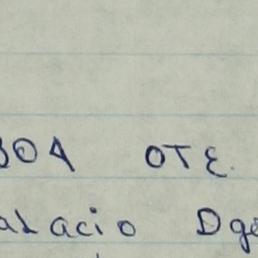 30A OTE.
alacio Dge